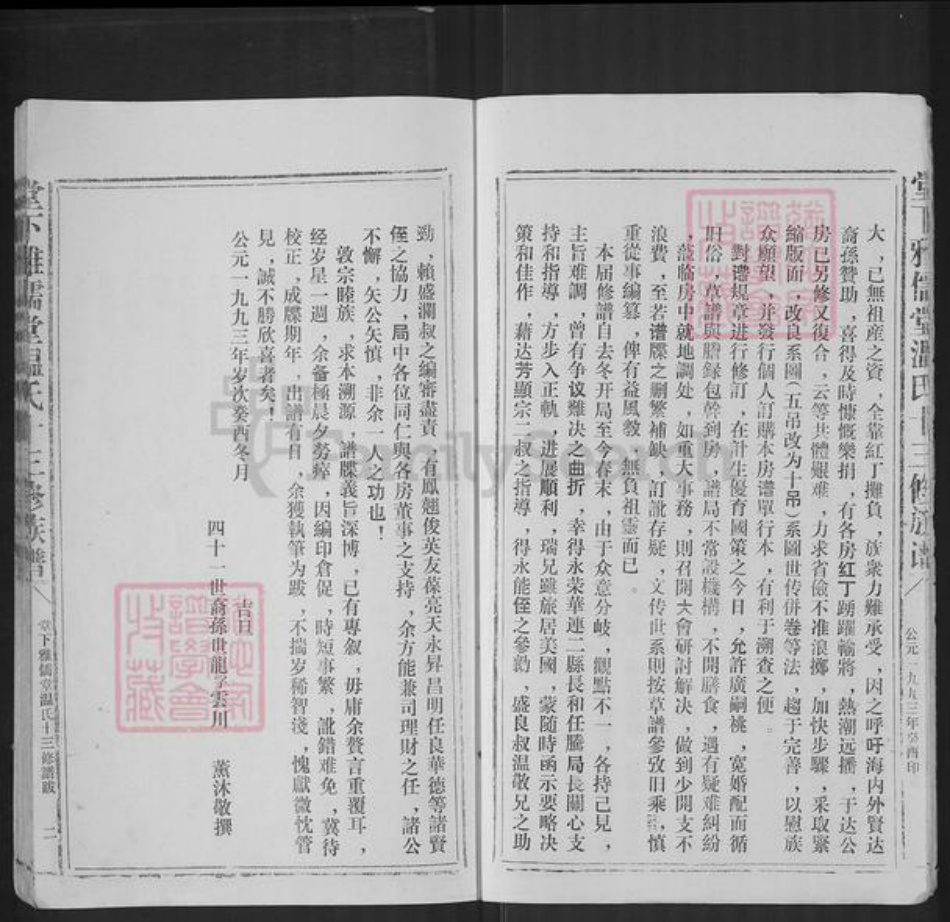 堂下雅儒堂溫氏十三修族譜
公元一九九三年癸酉印
大，已無祖産之資，全靠紅丁攤負，族衆力難承受，因之呼吁海内外賢达
裔孫贊助，喜得及時慷慨樂捐，有各房紅丁踴躍輸將，熱潮远播，于达公
房已另修又復合，云等共體艱难，力求省儉不准浪擲，加快步驟，采取緊
縮版面，改良系圖（五吊改为十吊）系圖世传併卷等法，趨于完善，以慰族
众願望，并發行個人訂購本房谱單行本，有利于溯查之便。
對谱規章進行修訂，在計生優育國策之今日，允許廣嗣桃，寬婚配而循
旧俗，草譜與謄録包幹到房，譜局不常設機構，不開膳食，遇有疑难糾紛
，蒞临房中就地調处，如重大事務，則召開大會研討解决，做到少開支不
浪費，至若谱牒之删繁補缺，訂訛存疑，文传世系則按草譜參攷旧乘，慎
重從事編纂，俾有益風教，無負祖靈而已。
本届修譜自去冬开局至今春末，由于众意分岐，觀點不一，各持己見，
主旨难調，曾有争议難决之曲折，幸得永荣華連二縣長和任騰局長關心支
持和指導，方步入正軌，进展顺利，瑞兄雖旅居美國，蒙随時函示要略决
策和佳作，藉达芳顯宗二叔之指導，得永能侄之參勷，盛良叔温敬兄之助
勁，賴盛瀾叔之編審盡責，有鳳翹俊英友葆亮天永昇昌明任良華德等諸賢
侄之協力，局中各位同仁與各房董事之支持，余方能兼司理財之任，諸公
不懈，矢公矢慎，非余一人之功也！
敦宗睦族，求本溯源，譜牒義旨深博，已有專叙，毋庸余贅言重覆耳，
经岁星一週，余备極晨夕勞瘁，因編印倉促，時短事繁，訛錯难免，冀待
校正，成牒期年，出譜有日，余獲執筆为跋，不揣岁稀智淺，愧獻微忱管
見，誠不勝欣喜者矣！
公元一九九三年岁次癸酉冬月
吉旦
四十一世裔孫世龍字雲川　薰沐敬撰
堂下雅儒堂溫氏十三修族譜
堂下雅儒堂温氏十三修譜跋
二
譜學會
收藏